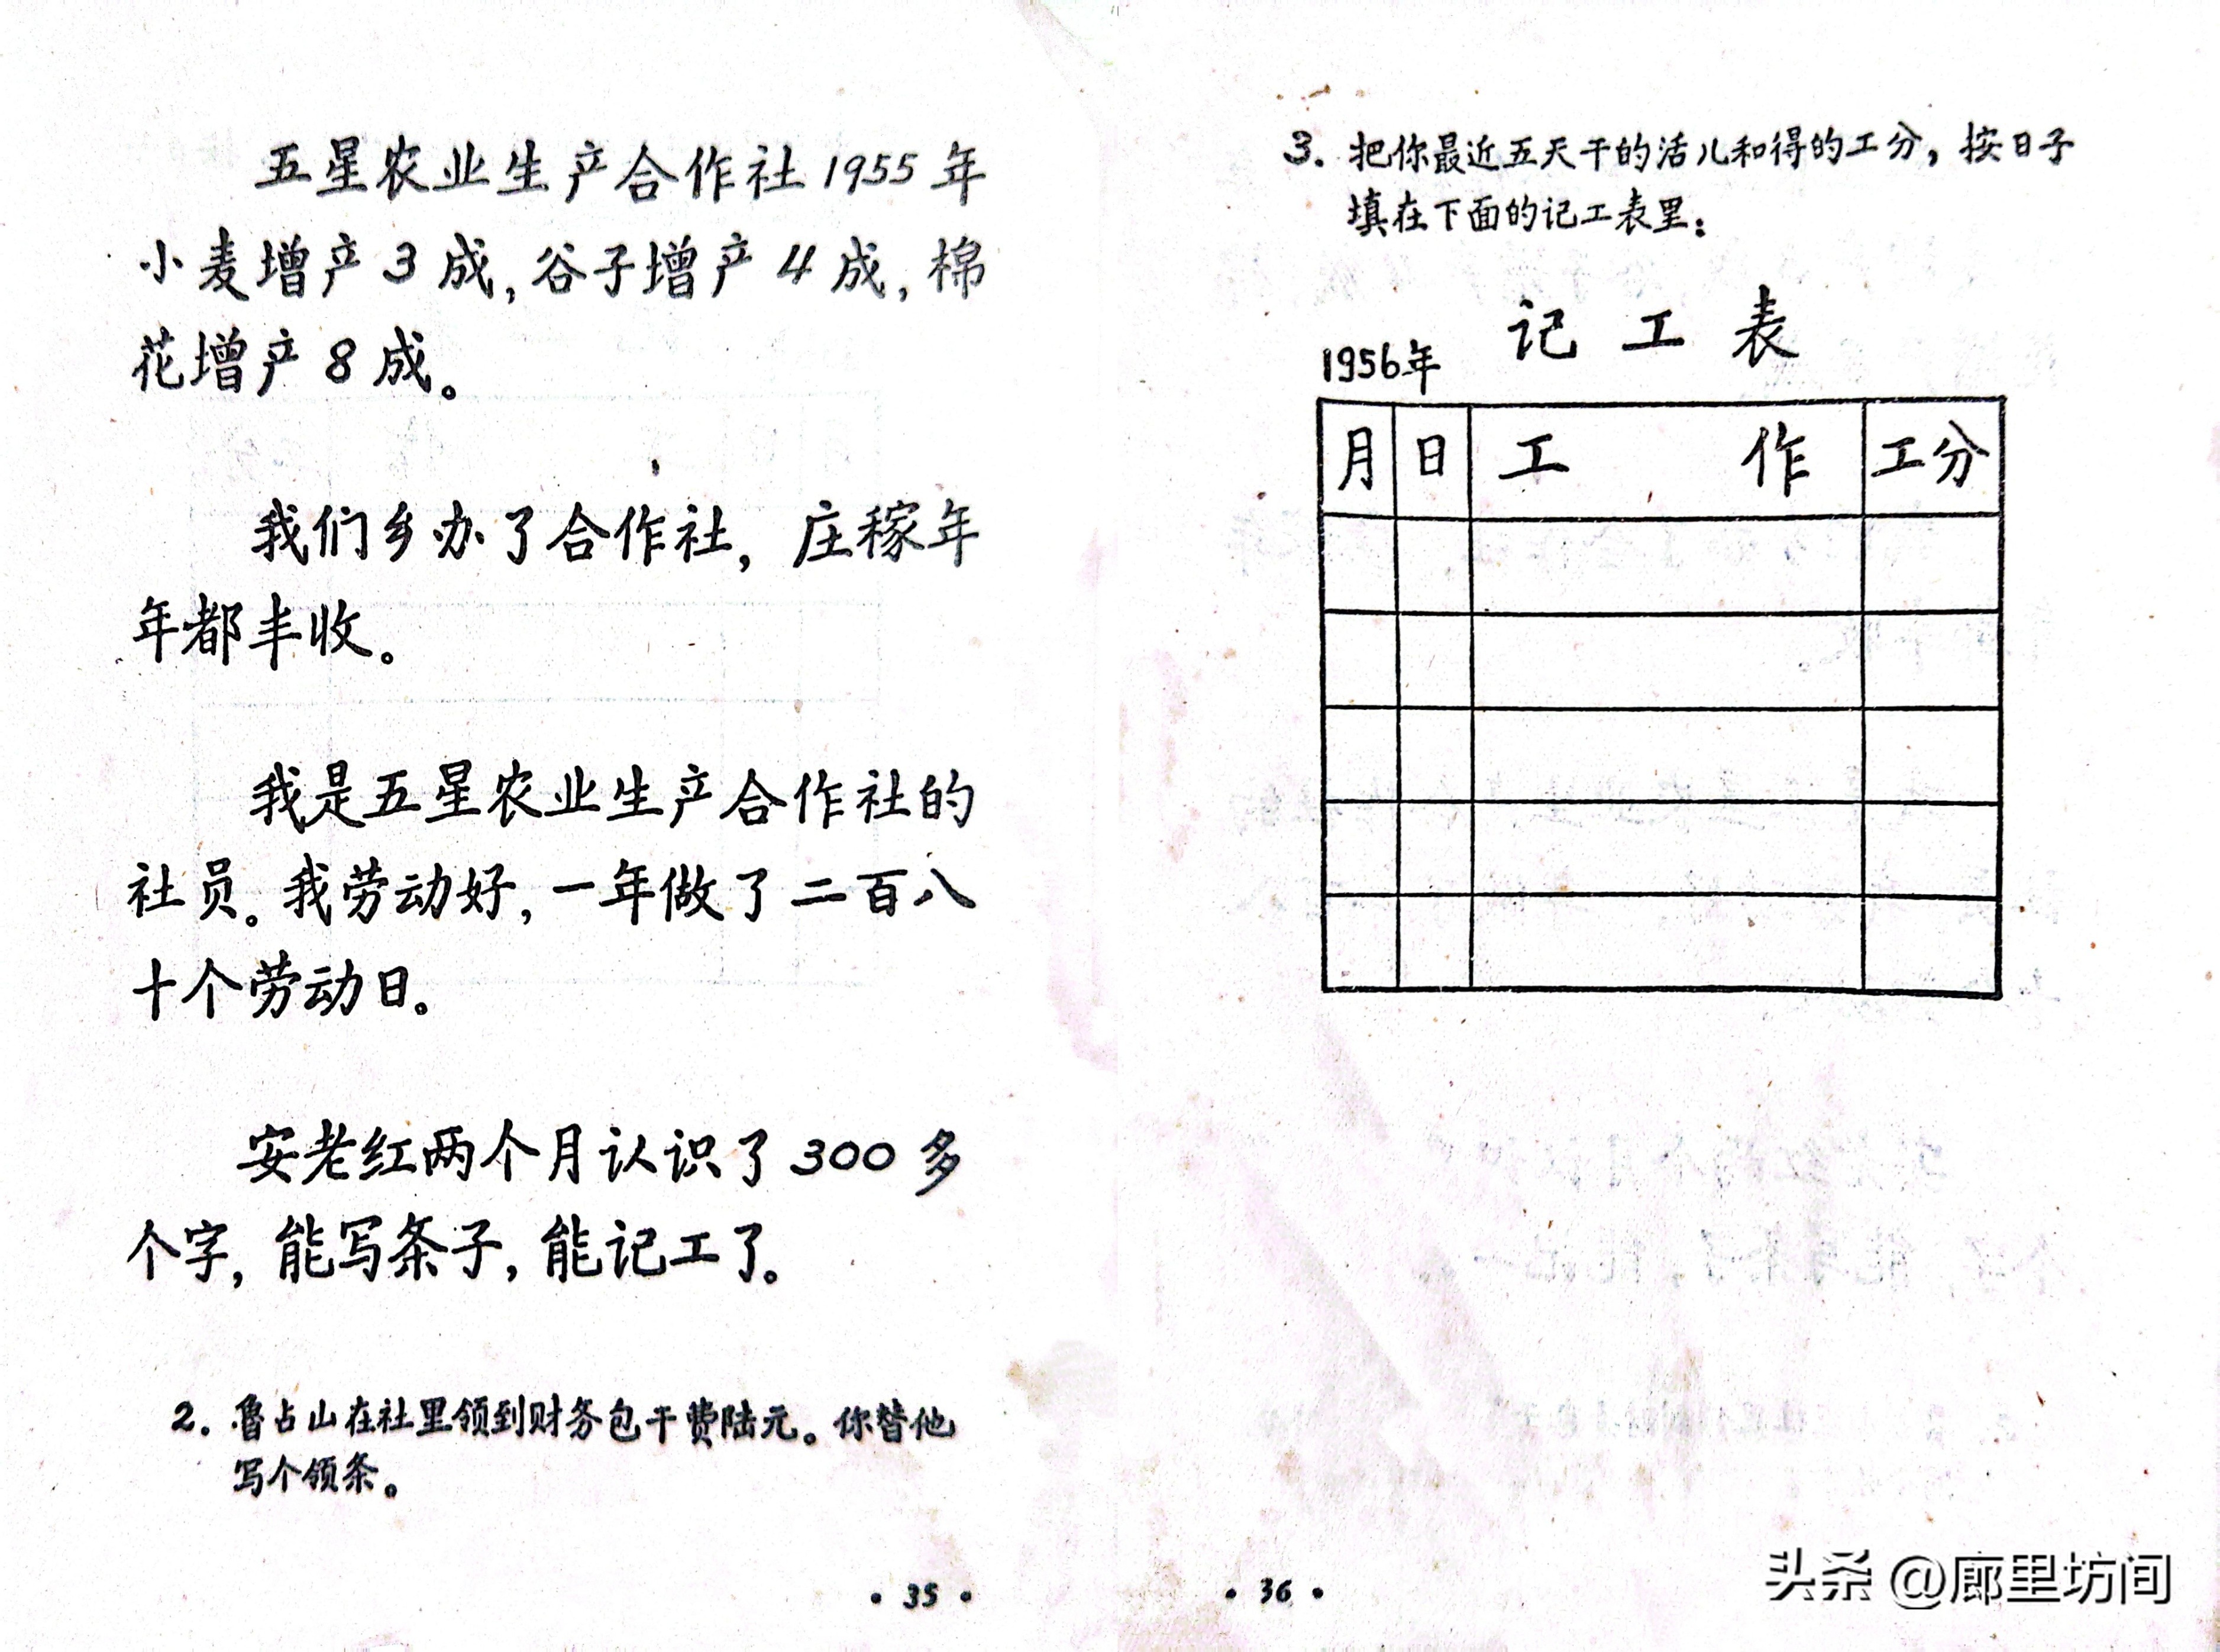 五星农业生产合作社1955年
小麦增产3成,谷子增产4成,棉
花增产8成。
我们乡办了合作社,庄稼年
年都丰收。
我是五星农业生产合作社的
社员。我劳动好,一年做了二百八
十个劳动日。
安老红两个月认识了300多
个字,能写条子,能记工了。
2. 鲁占山在社里领到财务包干费陆元。你替他
写个领条。
·35·
3. 把你最近五天干的活儿和得的工分,按日子
填在下面的记工表里:
记工表
1956年
月 日 工作 工分
·36·
头条 @廊里坊间